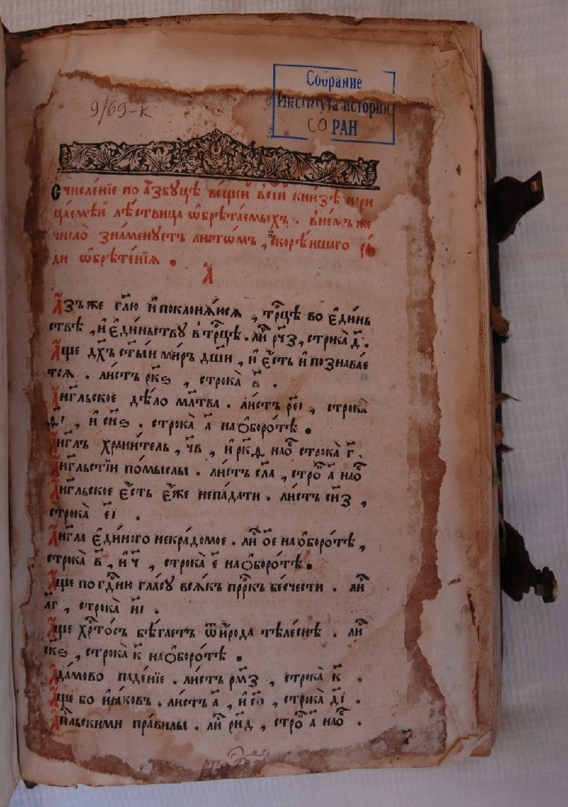 9/69-к
Собрание
Института истории
СО РАН
счисленїе по а҆́збуцѣ вещеи всеи книзѣ нри
цаемѣи лѣствица ѡ҆брѣтаемыхъ . внемъже
число̀ знаменуетъ листѡмъ , скорѣишаго ра́
ди ѡ҆брѣтенїѧ .
А҃
А҆зъже гл҃ю и҆поклонѧ́юсѧ , трⷪ҇цѣ во є҆ди́нь
ствѣ , и҆є҆ди́ньству втрⷪ҇цѣ . лиⷭ҇ рч҃з , строка̀ д҃ .
А҆ще дх҃ъ ст҃ыи ми́ръ дш҃и , и҆ є҆́сть и҆познавае
тсѧ . ли́стъ рк҃ѕ , строка̀ в҃ .
А҆́нг҃льское дѣ́ло мл҃тва . ли́стъ ре҃і , строка̀
и҆ си҃ѕ . строка̀ а҃ наѻ҆боро́тѣ .
А҆́нг҃лъ храни́тель , ч҃в , и҆ рк҃д наѻ҆ⷠ строка̀ г҃ .
А҆́нг҃льстїи по́мыслы . листъ сл҃а , строⷦ҇ а҃ наѻ҆ⷠ
А҆́нг҃льское є҆́сть є҆́же непа́дати . листъ си҃з ,
строка̀ е҃і .
А҆́нг҃ла є҆ди́ного некра́домое . лиⷭ҇ о҃е наѻ҆боро́тѣ ,
строка̀ в҃ , и҆ ч҃ , строка̀ е҃ наѻ҆боро́тѣ .
А҆́ще погдⷭ҇ню гла́су всѧ́къ прⷪ҇ркъ бесчести . лиⷭ҇
л҃г , строка̀ и҃і .
А҆́ще хрⷭ҇то́съ бѣ́гаетъ ѿи́рода тѣле́снѣ . лиⷭ҇
ск҃ѕ , строка̀ к҃ наѻ҆боро́тѣ .
А҆да́мово паде́нїе . листъ рм҃з , строка̀ к҃ .
А҆́ще бо и҆а́ковъ . листъ а҃ , и҆ с҃о , строка̀ д҃і .
А҆пⷭ҇льскими пра́вилы . лиⷭ҇ ри҃д , строⷦ҇ а҃ наѻ҆ⷠ .